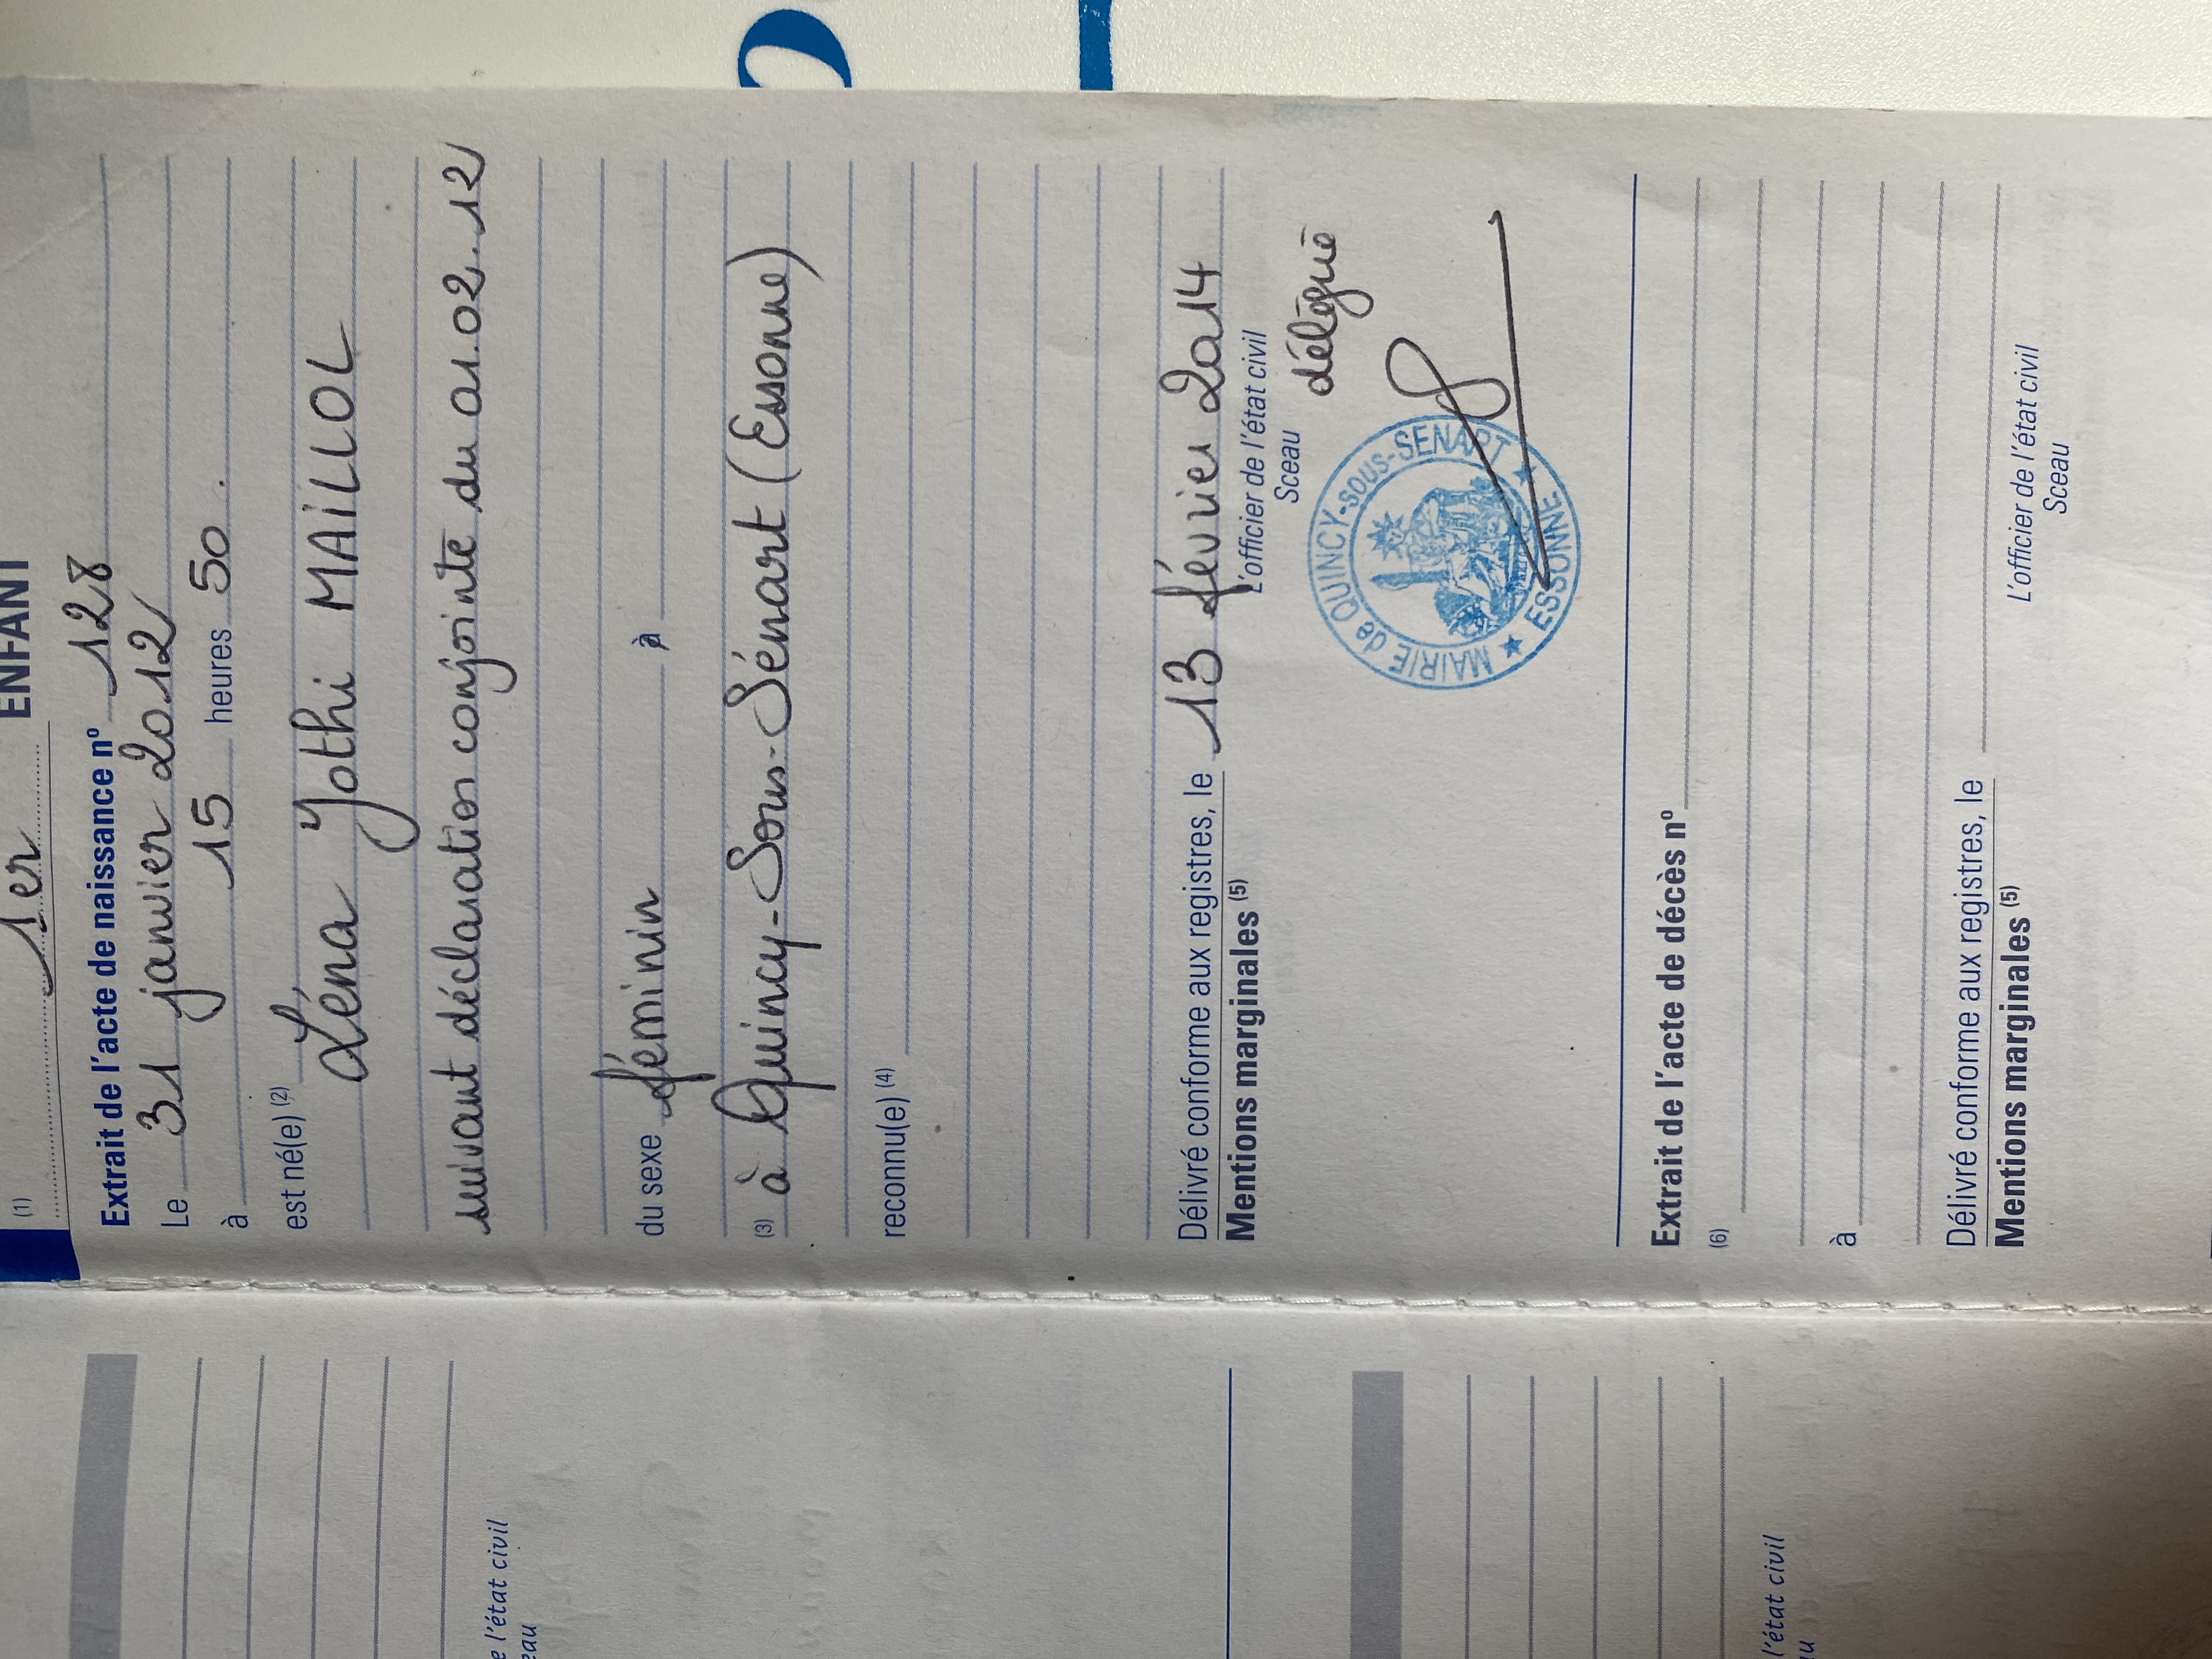 (1) 1er ENFANT
Extrait de l'acte de naissance nº 128
Le 31 janvier 2012
à 15 heures 50.
est né(e) (2)
Léna Jothi MAILLOL
suivant déclaration conjointe du 01.02.12
du sexe féminin à
(3) à Quincy-Sous-Sénart (Essonne)
reconnu(e) (4)
Délivré conforme aux registres, le 13 février 2014
Mentions marginales (5) L'officier de l'état civil
Sceau
délégué
MAIRIE de QUINCY-sous-SENART
★ ESSONNE ★
Extrait de l'acte de décès nº
(6)
à
Délivré conforme aux registres, le
Mentions marginales (5) L'officier de l'état civil
Sceau
e l'état civil
eau
l'état civil
au